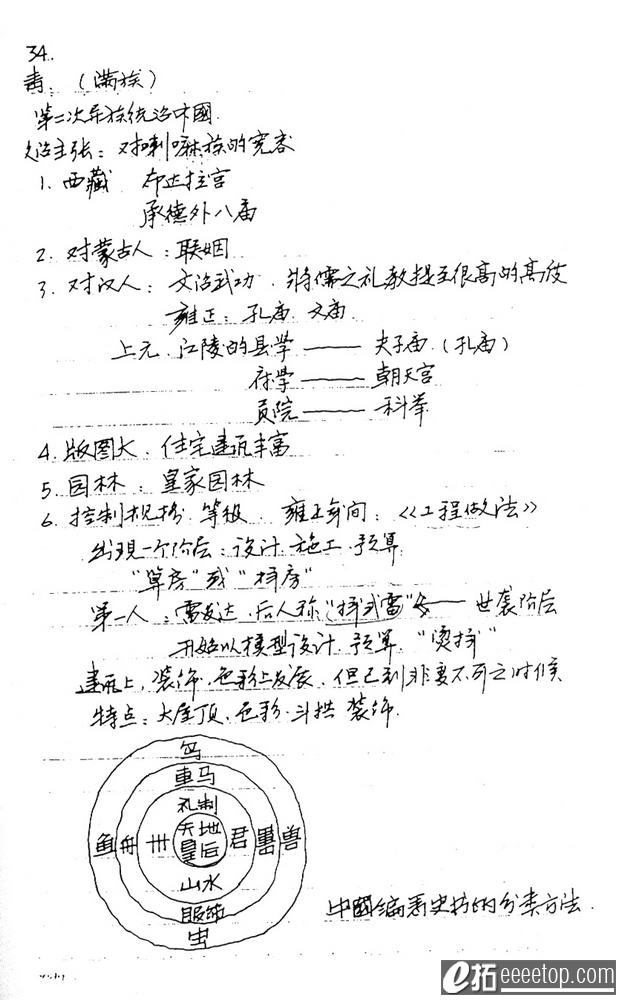 34.
青：（满族）
第二次异族统治中國.
政治主张：对喇嘛族的宽容
1. 西藏 布达拉宫
承德外八庙
2. 对蒙古人：联姻
3. 对汉人：文治武功．将儒之礼教提至很高的高度
雍正：孔庙 文庙.
上元．江陵的县学 —— 夫子庙（孔庙）
府学 —— 朝天宫
贡院 —— 科举
4. 版图大．住宅建筑丰富
5. 园林：皇家园林
6. 控制规格．等级． 雍正年间：《工程做法》
出现一个阶层：设计．施工．预算
“算房”或“样房”
第一人：雷发达．后人称“样式雷” ← 世袭阶层
开始以模型设计．预算．“烫样”
建筑上，装饰．色彩上发展．但已到非变不可之时候
特点：大屋顶．色彩．斗拱 装饰.
鸟
車马
礼制
鱼 舟 卅 天地 君 兽
皇后
山水
服饰
虫
中國编著史扵的分类方法．
e拓 eeeetop.com